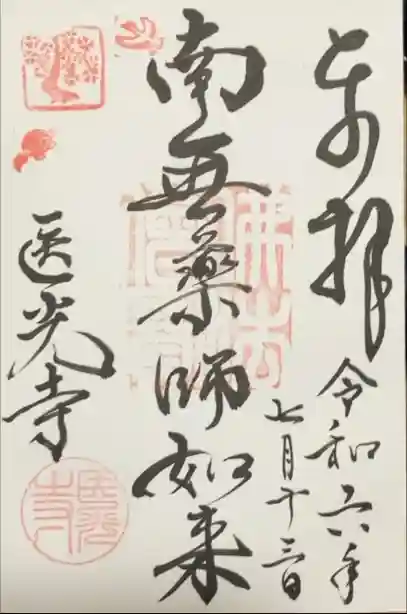 奉拝
令和六年
七月十三日
南無薬師如来
医光寺
佛法僧寳
医光寺